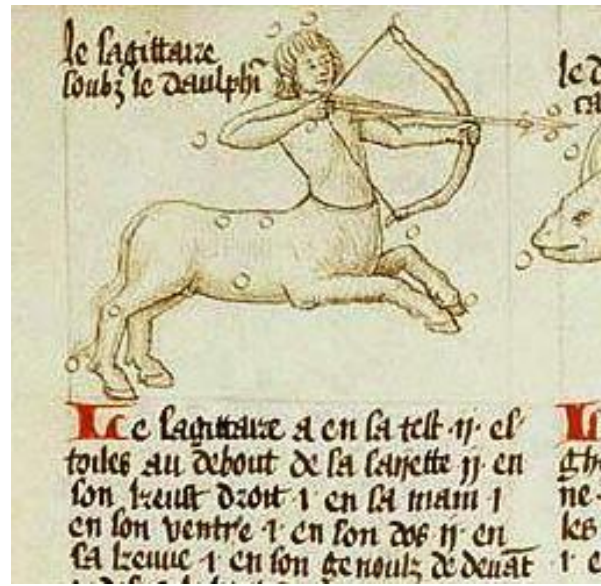 le sagittaire
soubz le daulphi
le d
ca
Le sagittaire a en sa test ij el
toiles au debout de sa sayette ij en
son keust droit 1 en sa main 1
en son ventre 1 en son dos ij en
sa keuue 1 en son genoulz de deuāt
L
gh
ne
les
1 e